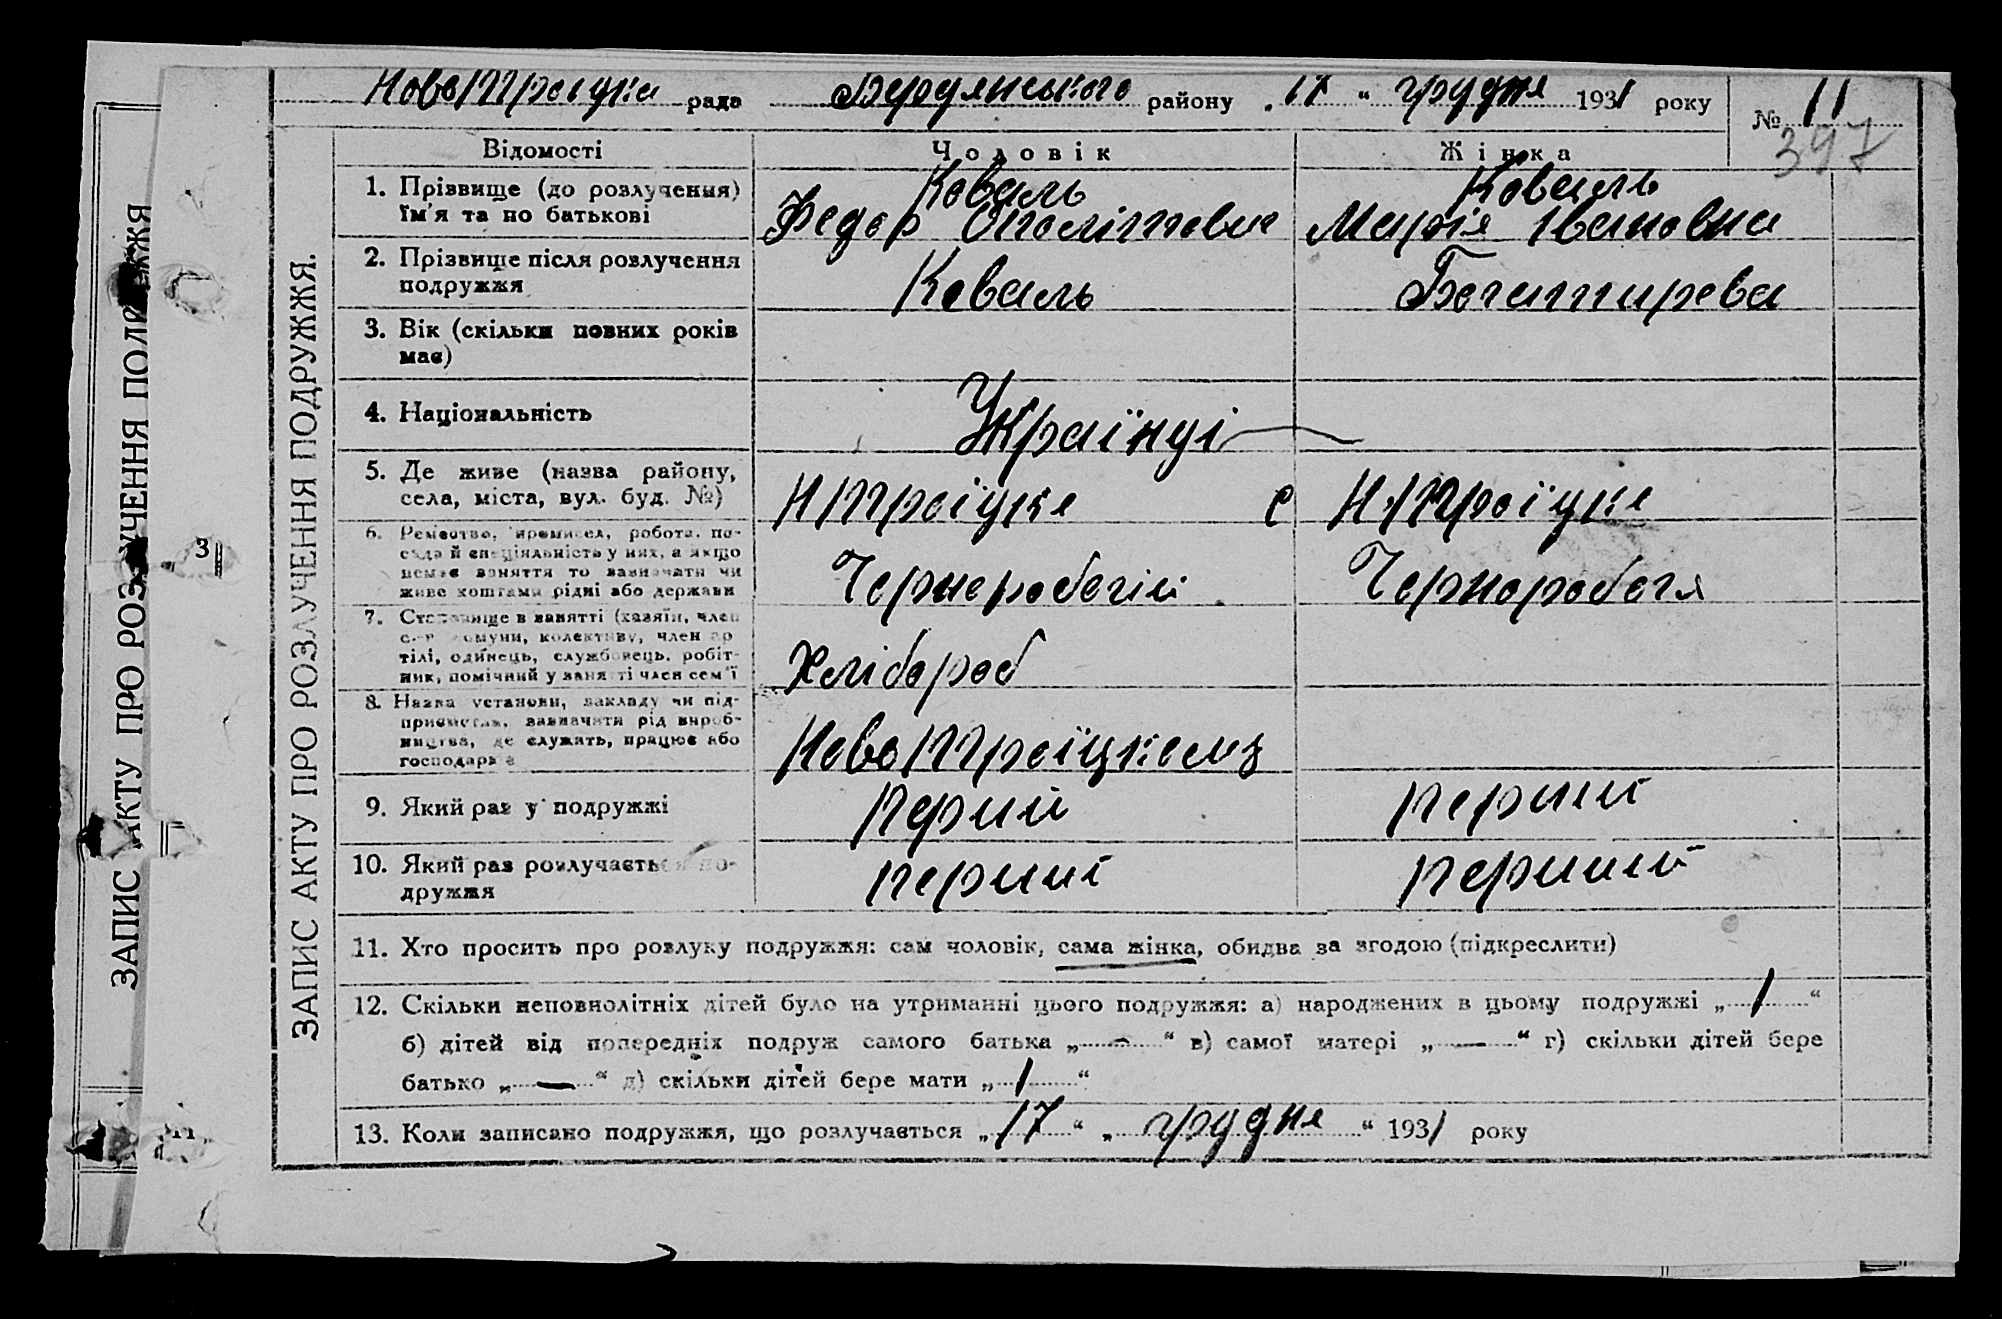 Ново Троіцка рада Бердянського району „17“ грудня 1931 року № 11
397
ЗАПИС АКТУ ПРО РОЗЛУЧЕННЯ ПОДРУЖЖЯ.
Відомості Чоловік Жінка
1. Прізвище (до розлучення) Коваль Коваль
їм'я та по батькові Федор Іполітович Марія Івановна
2. Прізвище після розлучення
подружжя Коваль Богатирева
3. Вік (скільки повних років
має)
4. Національність Українці
5. Де живе (назва району,
села, міста, вул. буд. №) Н Троїцке с Н Троїцке
6. Ремество, промисел, робота, по-
сада й спеціяльність у них, а якщо
немає заняття то зазначати чи
живе коштами рідні або держави Чорноробочій Чорноробоча
7. Становище в занятті (хазяїн, член
комуни, колективу, член ар
тілі, одинець, службовець, робіт-
ник, помічний у занятті член сем'ї Хлібороб
8. Назва установи, закладу чи під-
приємства, зазначати рід вироб-
ництва, де служить, працює або
господарює Ново Троїцкому
9. Який раз у подружжі перший перший
10. Який раз розлучається по-
дружжя перший перший
11. Хто просить про розлуку подружжя: сам чоловік, сама жінка, обидва за згодою (підкреслити)
12. Скільки неповнолітніх дітей було на утриманні цього подружжя: а) народжених в цьому подружжі „1“
б) дітей від попередніх подруж самого батька „—“ в) самої матері „—“ г) скільки дітей бере
батько „—“ д) скільки дітей бере мати „1“
13. Коли записано подружжя, що розлучається „17“ „грудня“ 1931 року
ЗАПИС АКТУ ПРО РОЗЛУЧЕННЯ ПОДРУЖЖЯ
3